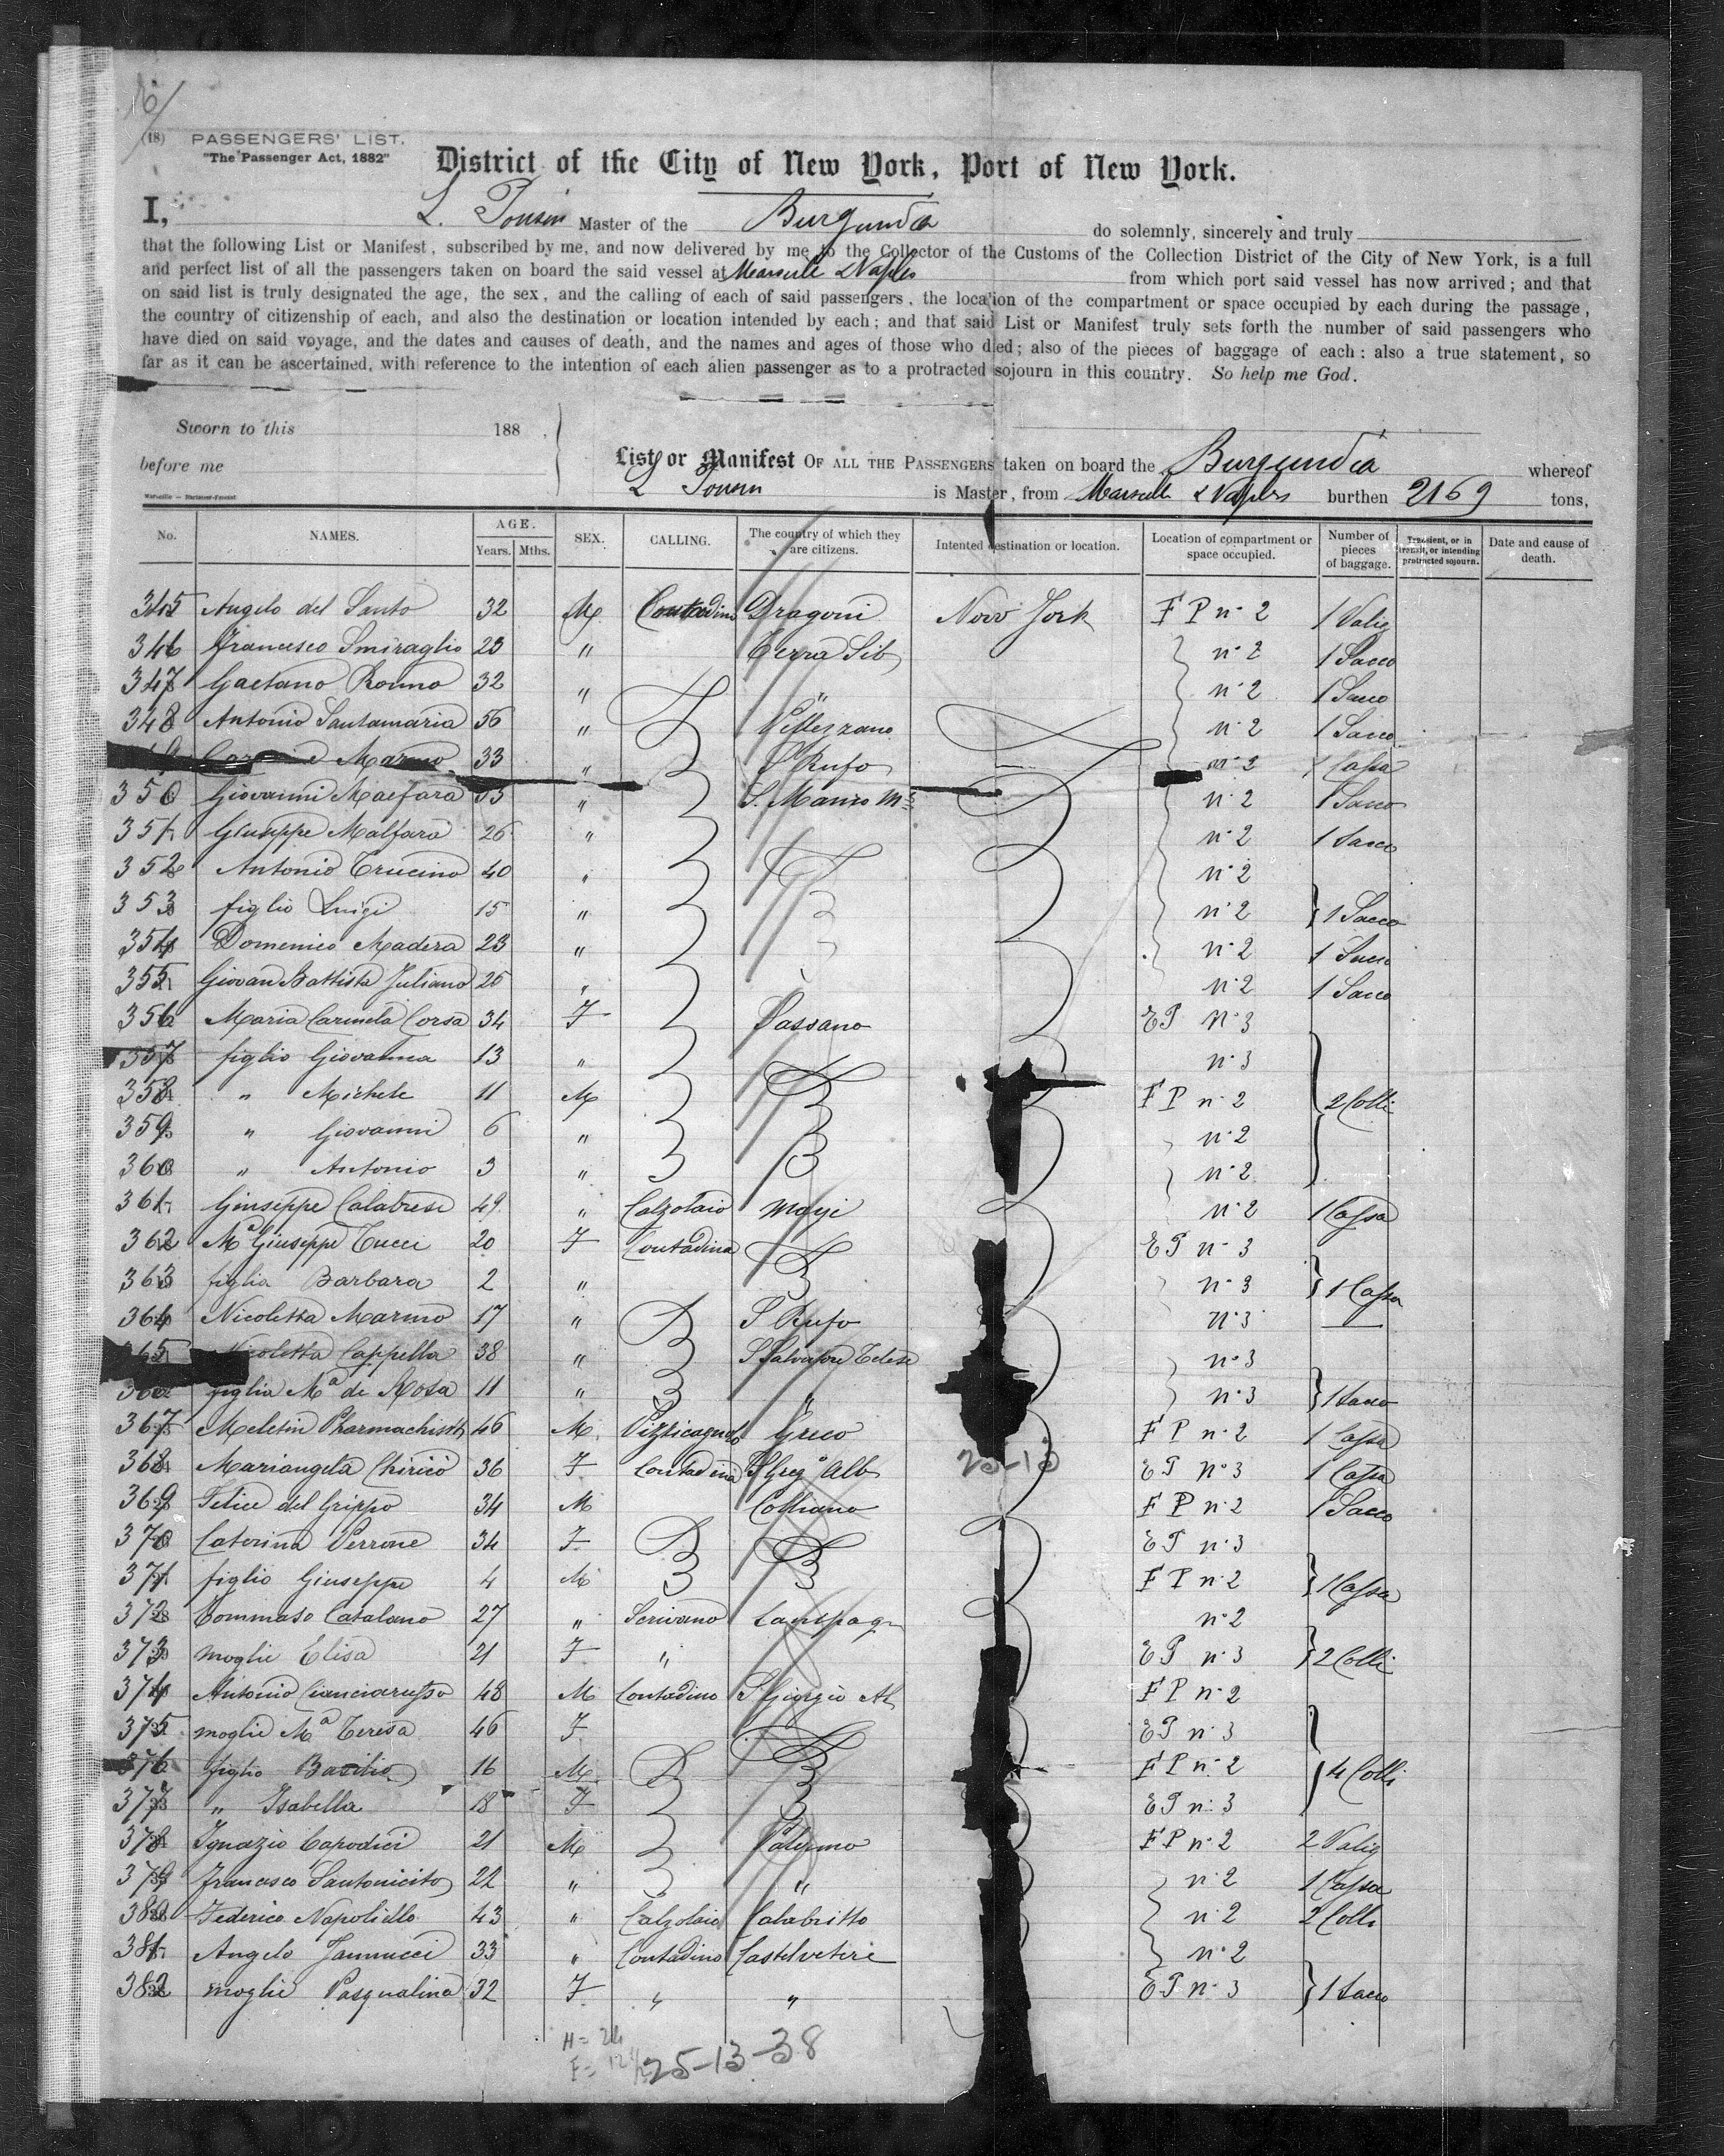 16/
(18) PASSENGERS' LIST.
"The Passenger Act, 1882"
District of the City of New York, Port of New York.
I, L. Master of the Burgundia do solemnly, sincerely and truly
that the following List or Manifest, subscribed by me, and now delivered by me to the Collector of the Customs of the Collection District of the City of New York, is a full
and perfect list of all the passengers taken on board the said vessel at Marseille & Naples from which port said vessel has now arrived; and that
on said list is truly designated the age, the sex, and the calling of each of said passengers, the location of the compartment or space occupied by each during the passage,
the country of citizenship of each, and also the destination or location intended by each; and that said List or Manifest truly sets forth the number of said passengers who
have died on said voyage, and the dates and causes of death, and the names and ages of those who died; also of the pieces of baggage of each: also a true statement, so
far as it can be ascertained, with reference to the intention of each alien passenger as to a protracted sojourn in this country. So help me God.
Sworn to this 188
before me
List or Manifest OF ALL THE PASSENGERS taken on board the Burgundia whereof
L is Master, from Marseille & Naples burthen 2169 tons,
No. NAMES. AGE. Years. Mths. SEX. CALLING. The country of which they are citizens. Intented destination or location. Location of compartment or space occupied. Number of pieces of baggage. Transient, or in transit, or intending protracted sojourn. Date and cause of death.
345 Angelo del Santo 32 M Contadino Dragoni Novo York F P n° 2 1 Valig
346 Francesco Smiraglio 23 " Cerra Sib n° 2 1 Sacco
347 Gaetano Romno 32 " " n° 2 1 Sacco
348 Antonio Santamaria 56 " Pellezzano n° 2 1 Sacco
Marino 33 " S Rufo n° 2 1 Cassa
350 Giovanni Maefara 33 " S. Mauro n° 2 1 Sacco
351 Giuseppe Malfara 26 " n° 2 1 Sacco
352 Antonio Crucino 40 " n° 2
353 figlio Luigi 15 " n° 2 1 Sacco
354 Domenico Madera 23 " n° 2 1 Sacco
355 Giovan Battista Juliano 26 " n° 2 1 Sacco
356 Maria Carmela Corsa 34 F Sassano E P n° 3
357 figlio Giovanna 13 " n° 3
358 " Michele 11 M F P n° 2 2 Colli
359 " Giovanni 6 " n° 2
360 " Antonio 3 " n° 2
361 Giuseppe Calabrese 49 " Calzolaio n° 2 1 Cassa
362 Ma Giuseppe Tucci 20 F Contadina E P n° 3
363 figlia Barbara 2 " n° 3 1 Cassa
364 Nicoletta Marino 17 " S Rufo n° 3
365 Nicoletta Cappella 38 " S Salvatore Telese n° 3
366 figlia Ma de Rosa 11 " " n° 3 1 Sacco
367 Meletin 46 M Pizzicagnolo Greco F P n° 2 1 Cassa
368 Mariangela Chirico 36 F Contadina S Greg° Alb E P n° 3 1 Cassa
369 Felice del Grippo 34 M Colliano F P n° 2 1 Sacco
370 Caterina Perrone 34 F E P n° 3
371 figlio Giuseppe 4 M F P n° 2 1 Cassa
372 Tommaso Catalano 27 " Scrivano Campag n° 2
373 moglie Elisa 21 F " E P n° 3 2 Colli
374 Antonio Cianciarusso 48 M Contadino S Giorgio F P n° 2
375 moglie Ma Teresa 46 F E P n° 3
376 figlio Basilio 16 M F P n° 2 4 Colli
377 " Isabella 18 F E P n° 3
378 Ignazio Capodici 21 M Palermo F P n° 2 2 Valig
379 Francesco Santonicito 22 " " n° 2 1 Cassa
380 Federico Napoliello 43 " Calzolaio Calabritto n° 2 2 Colli
381 Angelo Jannucci 33 " Contadino Castelvetere n° 2
382 moglie Pasqualina 32 F " " E P n° 3 1 Sacco
25-13
H = 24
25-13-38